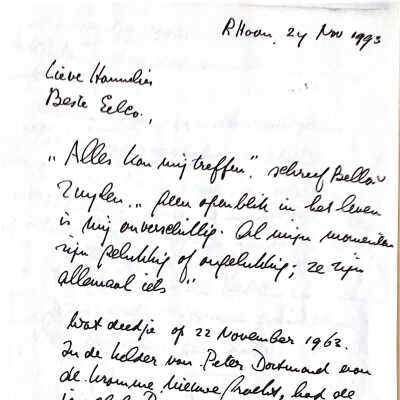 Rhoon, 24 Nov 1993
Lieve Hannelies
Beste Eelco,
„Alles kan mij treffen", schreef Belle v
Zuylen. „geen ogenblik in het leven
is mij onverschillig. Al mijn momenten
zijn gelukkig of ongelukkig; ze zijn
allemaal iets"
Wat deed je op 22 November 1963.
In de kelder van Peter Dortmond
de Kromme Nieuwe Gracht, had de